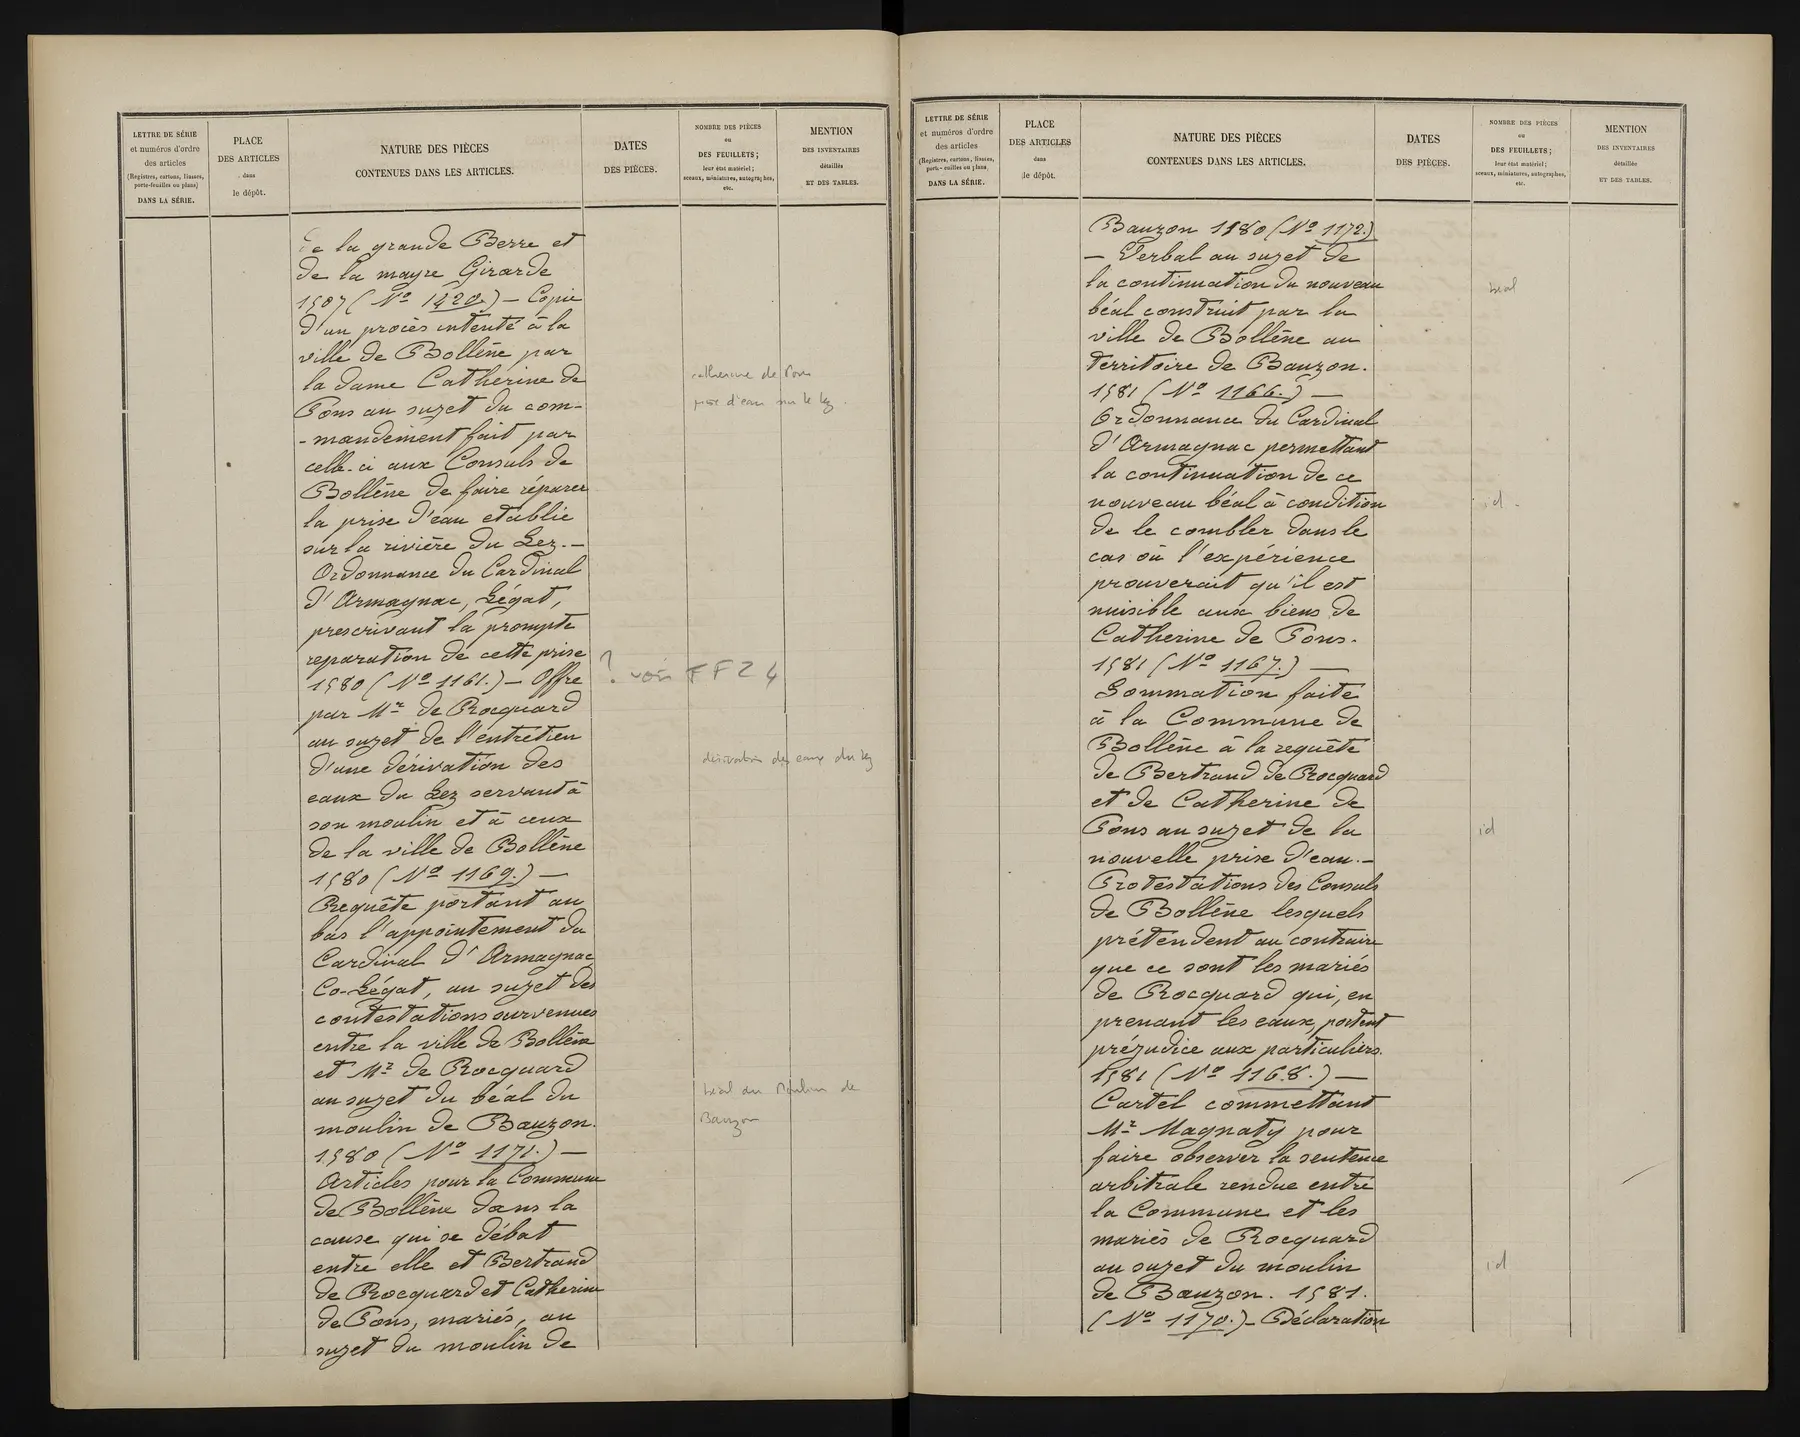 LETTRE DE SÉRIE
et numéros d'ordre
des articles
(Registres, cartons, liasses,
porte-feuilles ou plans)
DANS LA SÉRIE.
PLACE
DES ARTICLES
dans
le dépôt.
NATURE DES PIÈCES
CONTENUES DANS LES ARTICLES.
DATES
DES PIÈCES.
NOMBRE DES PIÈCES
ou
DES FEUILLETS;
leur état matériel;
sceaux, miniatures, autographes,
etc.
MENTION
DES INVENTAIRES
détaillés
ET DES TABLES.
de la grande Berre et
de la mayre Girarde
1507 (No 1420.) — Copie
d'un procès intenté à la
ville de Bollène par
la dame Catherine de
Pons au sujet du com-
-mandement fait par
celle-ci aux Consuls de
Bollène de faire réparer
la prise d'eau etablie
sur la rivière du Lez. —
Ordonnance du Cardinal
d'Armagnac, Légat,
prescrivant la prompte
reparation de cette prise
1580 (No 1161.) — Offre
par Mr de Rocquard
au sujet de l'entretien
d'une dérivation des
eaux du Lez servant à
son moulin et à ceux
de la ville de Bollène
1580 (No 1169.) —
Requête portant au
bas l'appointement du
Cardinal d'Armagnac
Co-Légat, au sujet des
contestations survenues
entre la ville de Bollène
et Mr de Rocquard
au sujet du béal du
moulin de Bauzon.
1580 (No 1171.) —
Articles pour la Commune
de Bollène dans la
cause qui se débat
entre elle et Bertrand
de Rocquard et Catherine
de Pons, mariés, au
sujet du moulin de
catherine de Pons
prise d'eau sur le lez.
? voir FF24
dérivation des eaux du lez
béal du Moulin de
Bauzon
LETTRE DE SÉRIE
et numéros d'ordre
des articles
(Registres, cartons, liasses,
porte-feuilles ou plans)
DANS LA SÉRIE.
PLACE
DES ARTICLES
dans
le dépôt.
NATURE DES PIÈCES
CONTENUES DANS LES ARTICLES.
DATES
DES PIÈCES.
NOMBRE DES PIÈCES
ou
DES FEUILLETS;
leur état matériel;
sceaux, miniatures, autographes,
etc.
MENTION
DES INVENTAIRES
détaillés
ET DES TABLES.
Bauzon 1580 (No 1172.)
— Verbal au sujet de
la continuation du nouveau
béal construit par la
ville de Bollène au
territoire de Bauzon.
1581 (No 1166.) —
Ordonnance du Cardinal
d'Armagnac permettant
la continuation de ce
nouveau béal à condition
de le combler dans le
cas où l'expérience
prouverait qu'il est
nuisible aux biens de
Catherine de Pons.
1581 (No 1167.) —
Sommation faite
à la Commune de
Bollène à la requête
de Bertrand de Rocquard
et de Catherine de
Pons au sujet de la
nouvelle prise d'eau. —
Protestations des Consuls
de Bollène lesquels
prétendent au contraire
que ce sont les mariés
de Rocquard qui, en
prenant les eaux, portent
préjudice aux particuliers.
1581 (No 1168.) —
Cartel commettant
Mr Magnaty pour
faire observer la sentence
arbitrale rendue entre
la Commune et les
mariés de Rocquard
au sujet du moulin
de Bauzon. 1581.
(No 1170.) — Déclaration
béal
id.
id
id